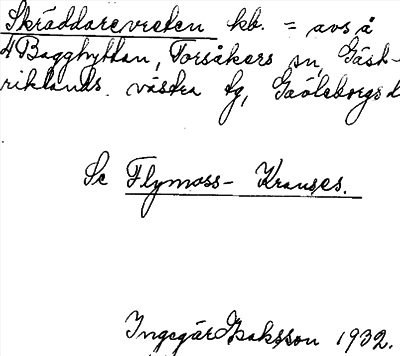 Skräddarevreten kb. = avs å
4 Bagghyttan, Torsåkers sn, Gäst-
riklands västra tg, Gävleborgs l
Se Flymoss- Krauses.
Ingegär Isaksson 1932.